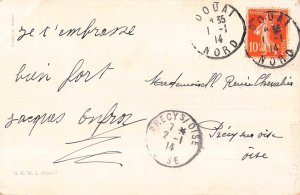 DOUAI
8 35
1 - 1
14
NORD
DOUAI
14
NORD
10
je t'embrasse
bien fort
Jacques
Mademoiselle Renée Chevalier
Précy sur oise
oise
PRECY S/ OISE
7 *
2 - 1
14
SE